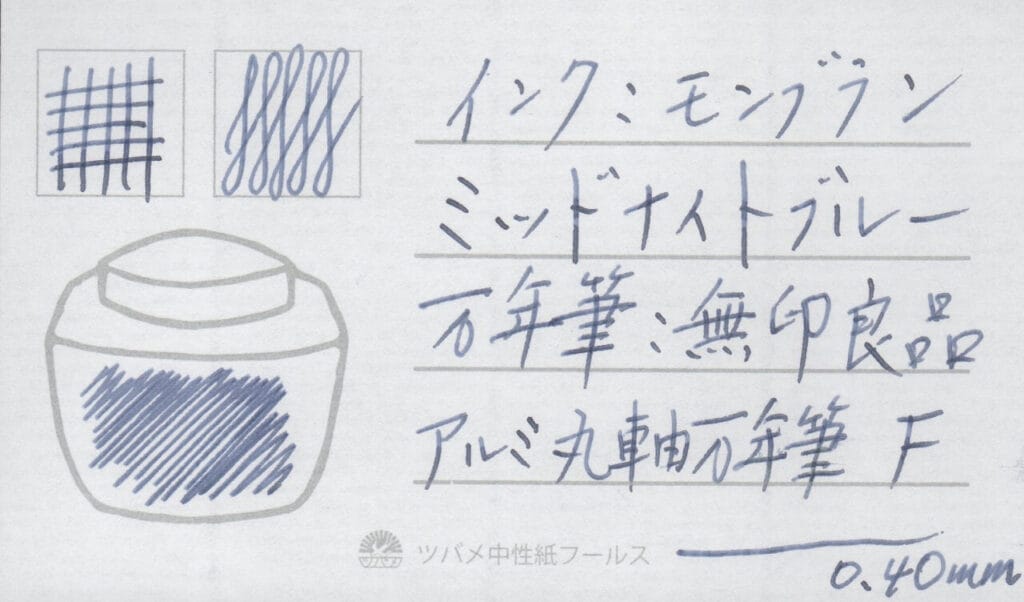 インク：モンブラン
ミッドナイトブルー
万年筆：無印良品
アルミ丸軸万年筆 F
ツバメ中性紙フールス
0.40mm